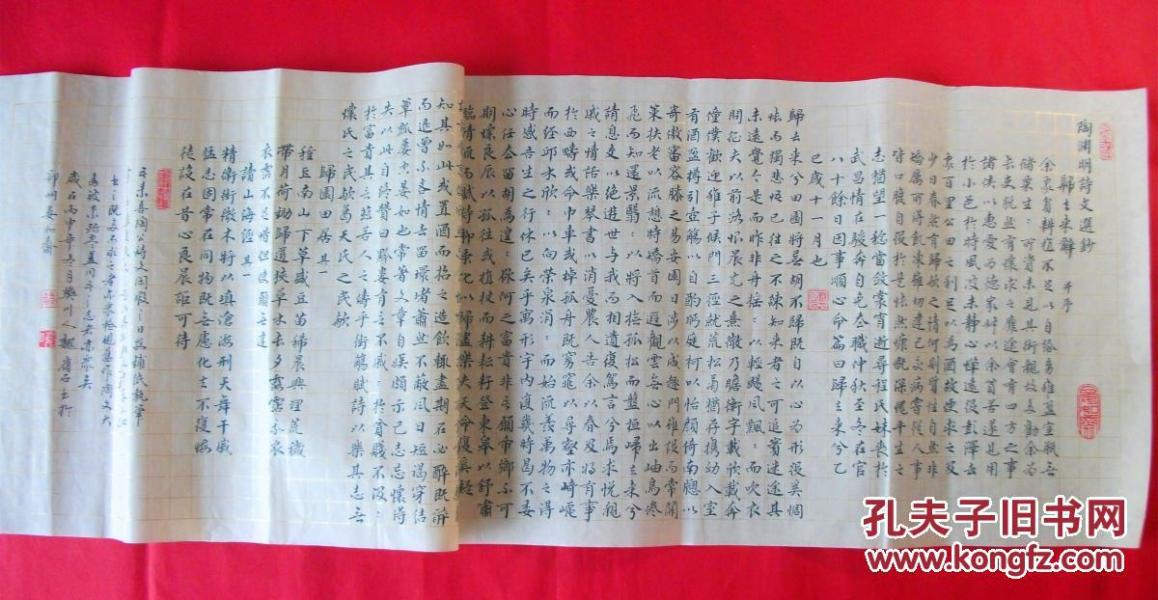 陶渊明詩文選鈔
歸去來辭 并序
余家貧耕植不足以自給幼稚盈室缾無
儲粟生生所資未見其術親故多勸余為
長吏脫然有懷求之靡途會有四方之事
諸侯以惠愛為德家叔以余貧苦遂見用
於小邑于時風波未靜心憚遠役彭澤去
家百里公田之利足以為酒故便求之及
少日眷然有歸歟之情何則質性自然非
矯厲所得飢凍雖切違己交病嘗從人事
皆口腹自役於是悵然慷慨深愧平生之
志猶望一稔當斂裳宵逝尋程氏妹喪於
武昌情在駿奔自免去職仲秋至冬在官
八十餘日因事順心命篇曰歸去來兮乙
巳歲十一月也
歸去來兮田園將蕪胡不歸既自以心為形役奚惆
悵而獨悲悟已往之不諫知來者之可追實迷途其
未遠覺今是而昨非舟搖搖以輕颺風飄飄而吹衣
問征夫以前路恨晨光之熹微乃瞻衡宇載欣載奔
僮僕歡迎稚子候門三徑就荒松菊猶存攜幼入室
有酒盈樽引壺觴以自酌眄庭柯以怡顏倚南牕以
寄傲審容膝之易安園日涉以成趣門雖設而常關
策扶老以流憩時矯首而遐觀雲無心以出岫鳥倦
飛而知還景翳翳以將入撫孤松而盤桓歸去來兮
請息交以絕遊世與我而相遺復駕言兮焉求悅親
戚之情話樂琴書以消憂農人告余以春及將有事
於西疇或命巾車或棹孤舟既窈窕以尋壑亦崎嶇
而經邱木欣欣以向榮泉涓涓而始流羨萬物之得
時感吾生之行休已矣乎寓形宇內復幾時曷不委
心任去留胡為遑遑欲何之富貴非吾願帝鄉不可
期懷良辰以孤往或植杖而耘耔登東皋以舒嘯
臨清流而賦詩聊乘化以歸盡樂夫天命復奚疑
知其如此或置酒而招之造飲輒盡期在必醉既醉
而退曾不吝情去留環堵蕭然不蔽風日短褐穿結
簞瓢屢空晏如也常著文章自娛頗示己志忘懷得
失以此自終贊曰黔婁有言不戚戚於貧賤不汲汲
於富貴其言茲若人之儔乎銜觴賦詩以樂其志無
懷氏之民歟葛天氏之民歟
歸園田居其一
種豆南山下草盛豆苗稀晨興理荒穢
帶月荷鋤歸道狹草木長夕露霑我衣
衣霑不足惜但使願無違
讀山海經其一
精衛銜微木將以填滄海刑天舞干戚
猛志固常在同物既無慮化去不復悔
徒設在昔心良晨詎可待
孔夫子旧书网
www.kongfz.com